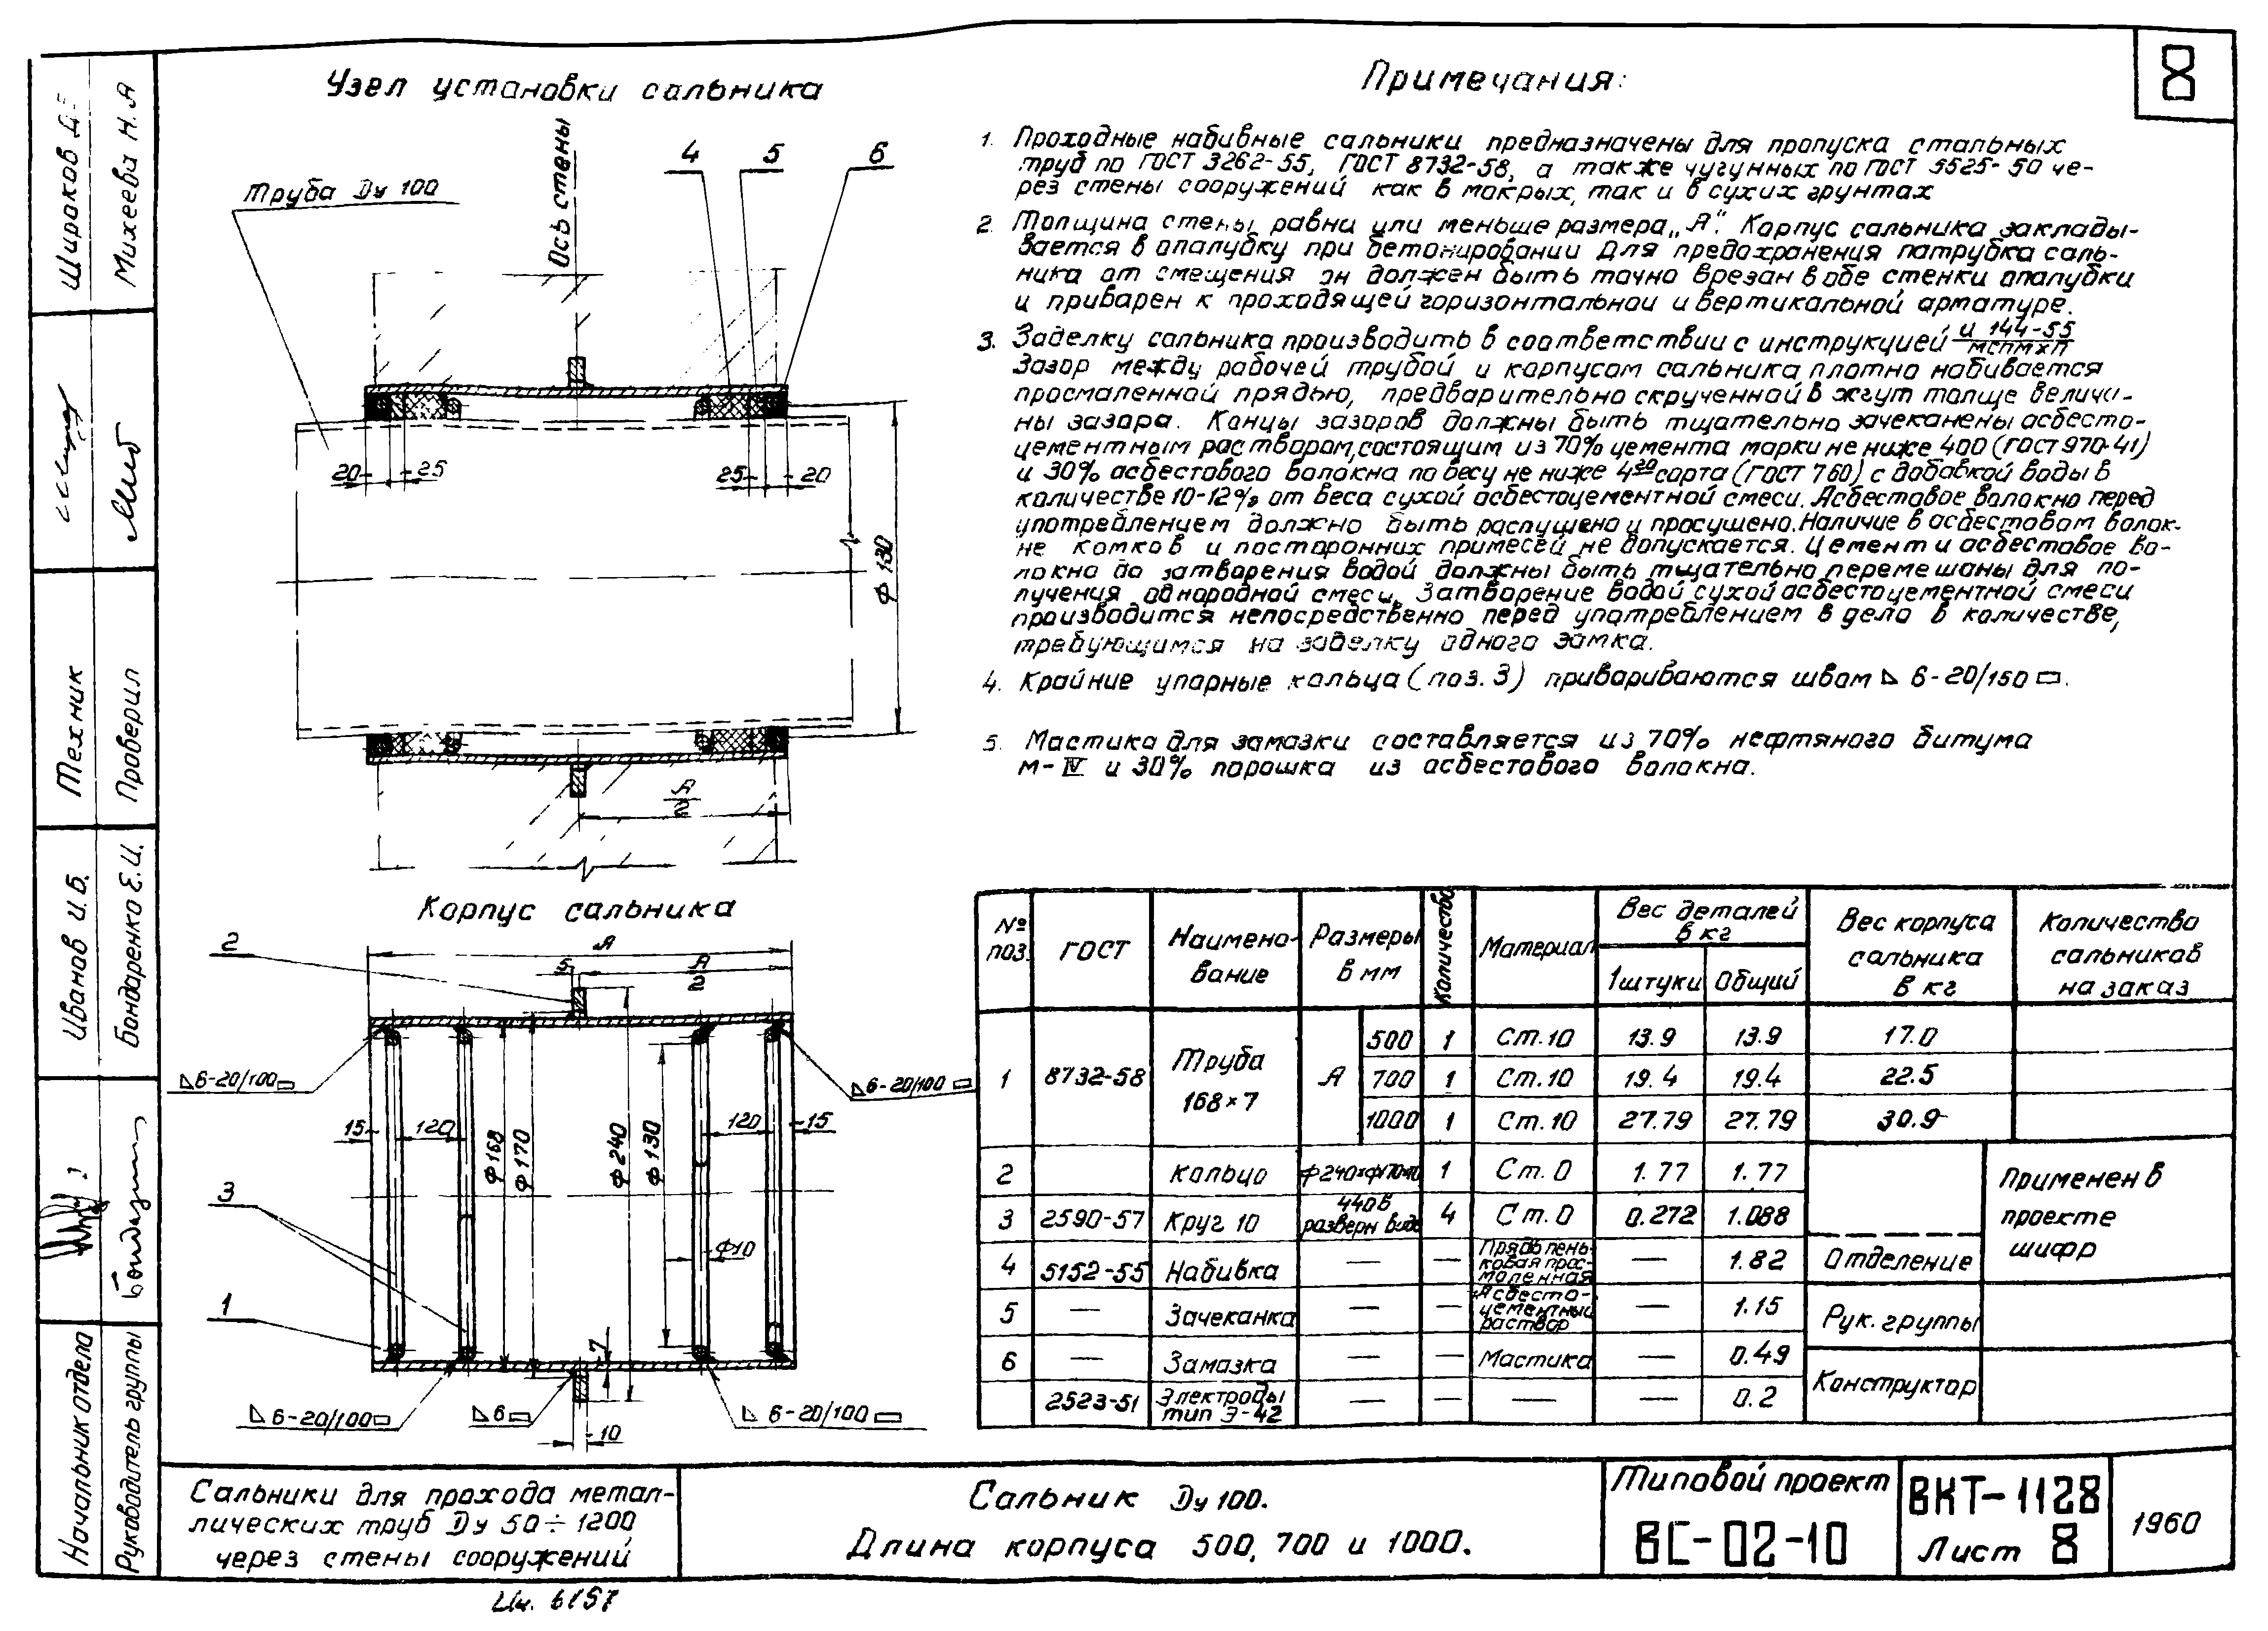 8
Узел установки сальника
Ось стены
4
5
6
Труба Ду 100
20
25
25
20
ф 130
А
2
Корпус сальника
2
А
5
А
2
6-20/100
6-20/100
15
120
ф168
ф170
ф240
ф130
120
15
3
ф10
1
7
6-20/100
6
6-20/100
10
Примечания:
1. Проходные набивные сальники предназначены для пропуска стальных
труб по ГОСТ 3262-55, ГОСТ 8732-58, а также чугунных по ГОСТ 5525-50 че-
рез стены сооружений как в мокрых, так и в сухих грунтах
2. Толщина стены равна или меньше размера „А". Корпус сальника заклады-
вается в опалубку при бетонировании Для предохранения патрубка саль-
ника от смещения он должен быть точно врезан в обе стенки опалубки
и приварен к проходящей горизонтальной и вертикальной арматуре.
3. Заделку сальника производить в соответствии с инструкцией И 144-55
МСПМХП
Зазор между рабочей трубой и корпусом сальника плотно набивается
просмоленной прядью, предварительно скрученной в жгут толще величи-
ны зазора. Концы зазоров должны быть тщательно зачеканены асбесто-
цементным раствором, состоящим из 70% цемента марки не ниже 400 (ГОСТ 970-41)
и 30% асбестового волокна по весу не ниже 4го сорта (ГОСТ 760) с добавкой воды в
количестве 10-12% от веса сухой асбестоцементной смеси. Асбестовое волокно перед
употреблением должно быть распушено и просушено. Наличие в асбестовом волок-
не комков и посторонних примесей не допускается. Цемент и асбестовое во-
локно до затворения водой должны быть тщательно перемешаны для по-
лучения однородной смеси. Затворение водой сухой асбестоцементной смеси
производится непосредственно перед употреблением в дело в количестве,
требующимся на заделку одного замка.
4. Крайние упорные кольца (поз. 3) привариваются швом 6-20/150.
5. Мастика для замазки составляется из 70% нефтяного битума
М-IV и 30% порошка из асбестового волокна.
№ поз. ГОСТ Наимено- вание Размеры в мм Количество Материал Вес деталей в кг 1 штуки Общий Вес корпуса сальника в кг Количество сальников на заказ
1 8732-58 Труба 168×7 А 500 1 Ст.10 13.9 13.9 17.0
700 1 Ст.10 19.4 19.4 22.5
1000 1 Ст.10 27.79 27.79 30.9
2 Кольцо ф240×ф170×10 1 Ст.0 1.77 1.77
3 2590-57 Круг 10 440 в разверн виде 4 Ст.0 0.272 1.088
4 5152-55 Набивка — — Прядь пень- ковая прос- моленная — 1.82
5 — Зачеканка — — Асбесто- цементный раствор — 1.15
6 — Замазка — — Мастика — 0.49
2523-51 Электроды тип Э-42 — — — — 0.2
Применен в
проекте
шифр
Отделение
Рук. группы
Конструктор
Начальник отдела Иванов И.Б. Техник Широков
Руководитель группы Бондаренко Е.И. Проверил Михеева Н.А
Сальники для прохода метал-
лических труб Ду 50÷1200
через стены сооружений
Сальник Ду 100.
Длина корпуса 500, 700 и 1000.
Типовой проект
ВС-02-10
ВКТ-1128
Лист 8
1960
Ин. 6157